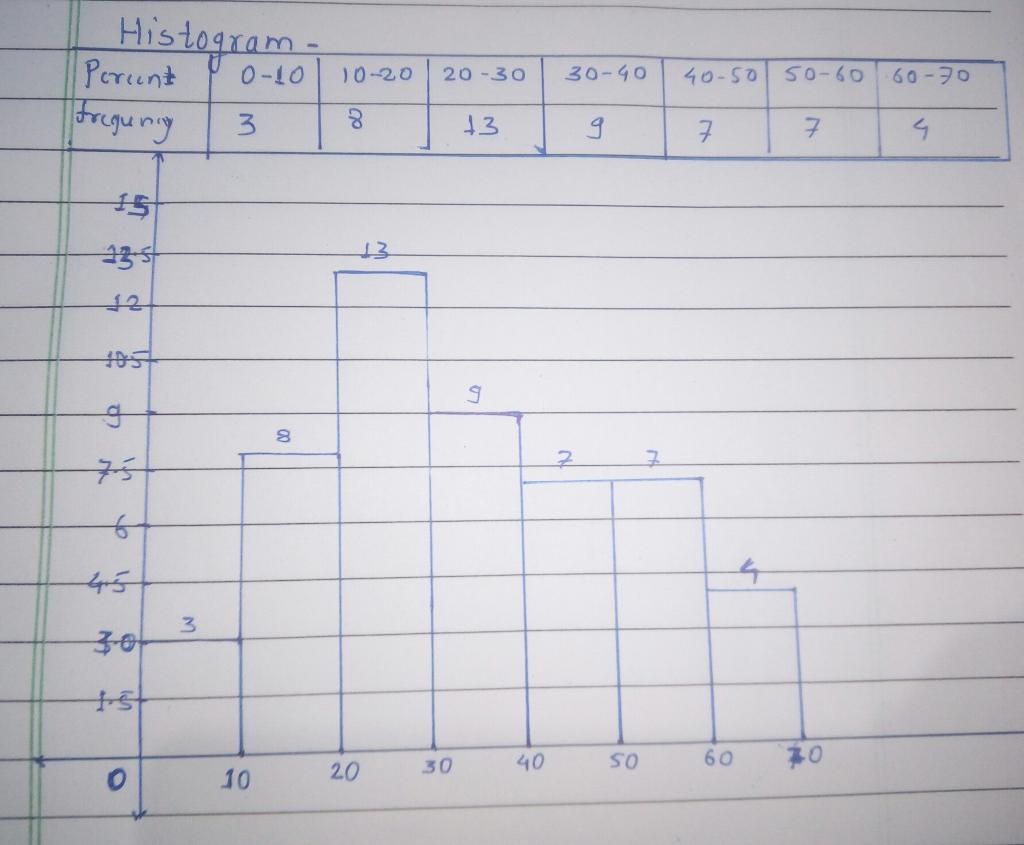 Histogram -
Percent 0-10 10-20 20-30 30-40 40-50 50-60 60-70
frequncy 3 8 13 9 7 7 4
15
13.5 13
12
10.5
9 9
8
7.5 7 7
6
4.5 4
3.0 3
1.5
0 10 20 30 40 50 60 70